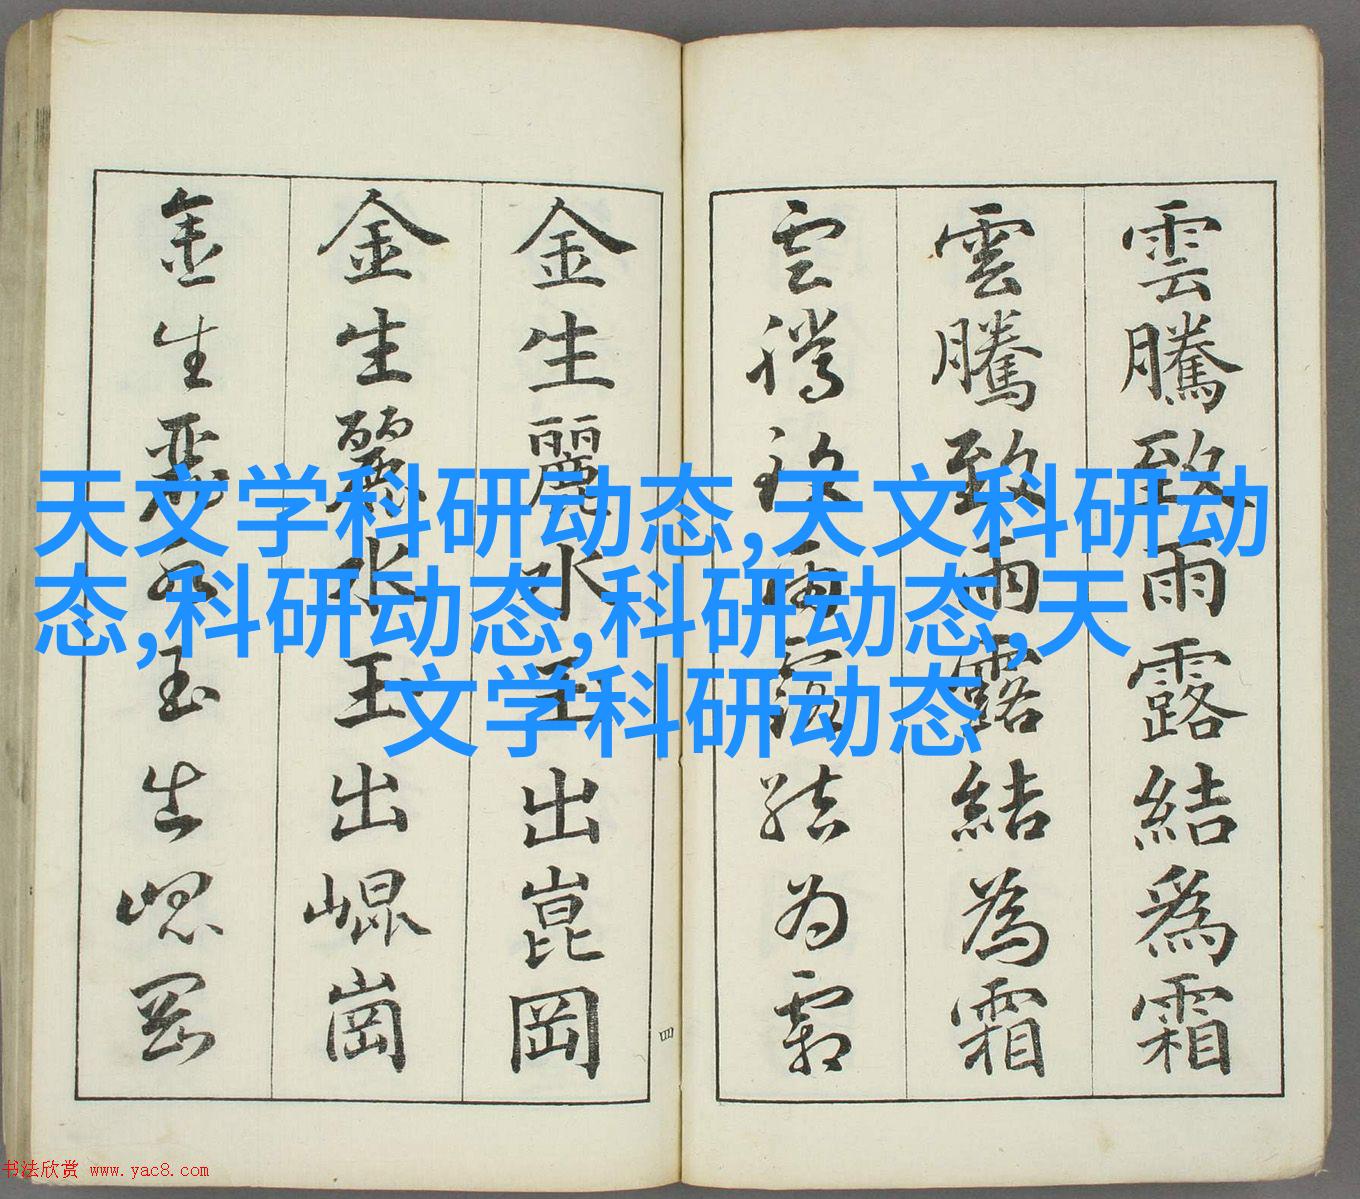 雲騰致雨露結爲霜
雲騰致雨露結為霜
雲騰致雨露結為霜
金生麗水玉出崑岡
金生麗水玉出崐崗
金生麗水玉出崐岡
四
天文学科研动态,天文科研动
态,科研动态,科研动态,天
文学科研动态
书法欣赏 www.yac8.com